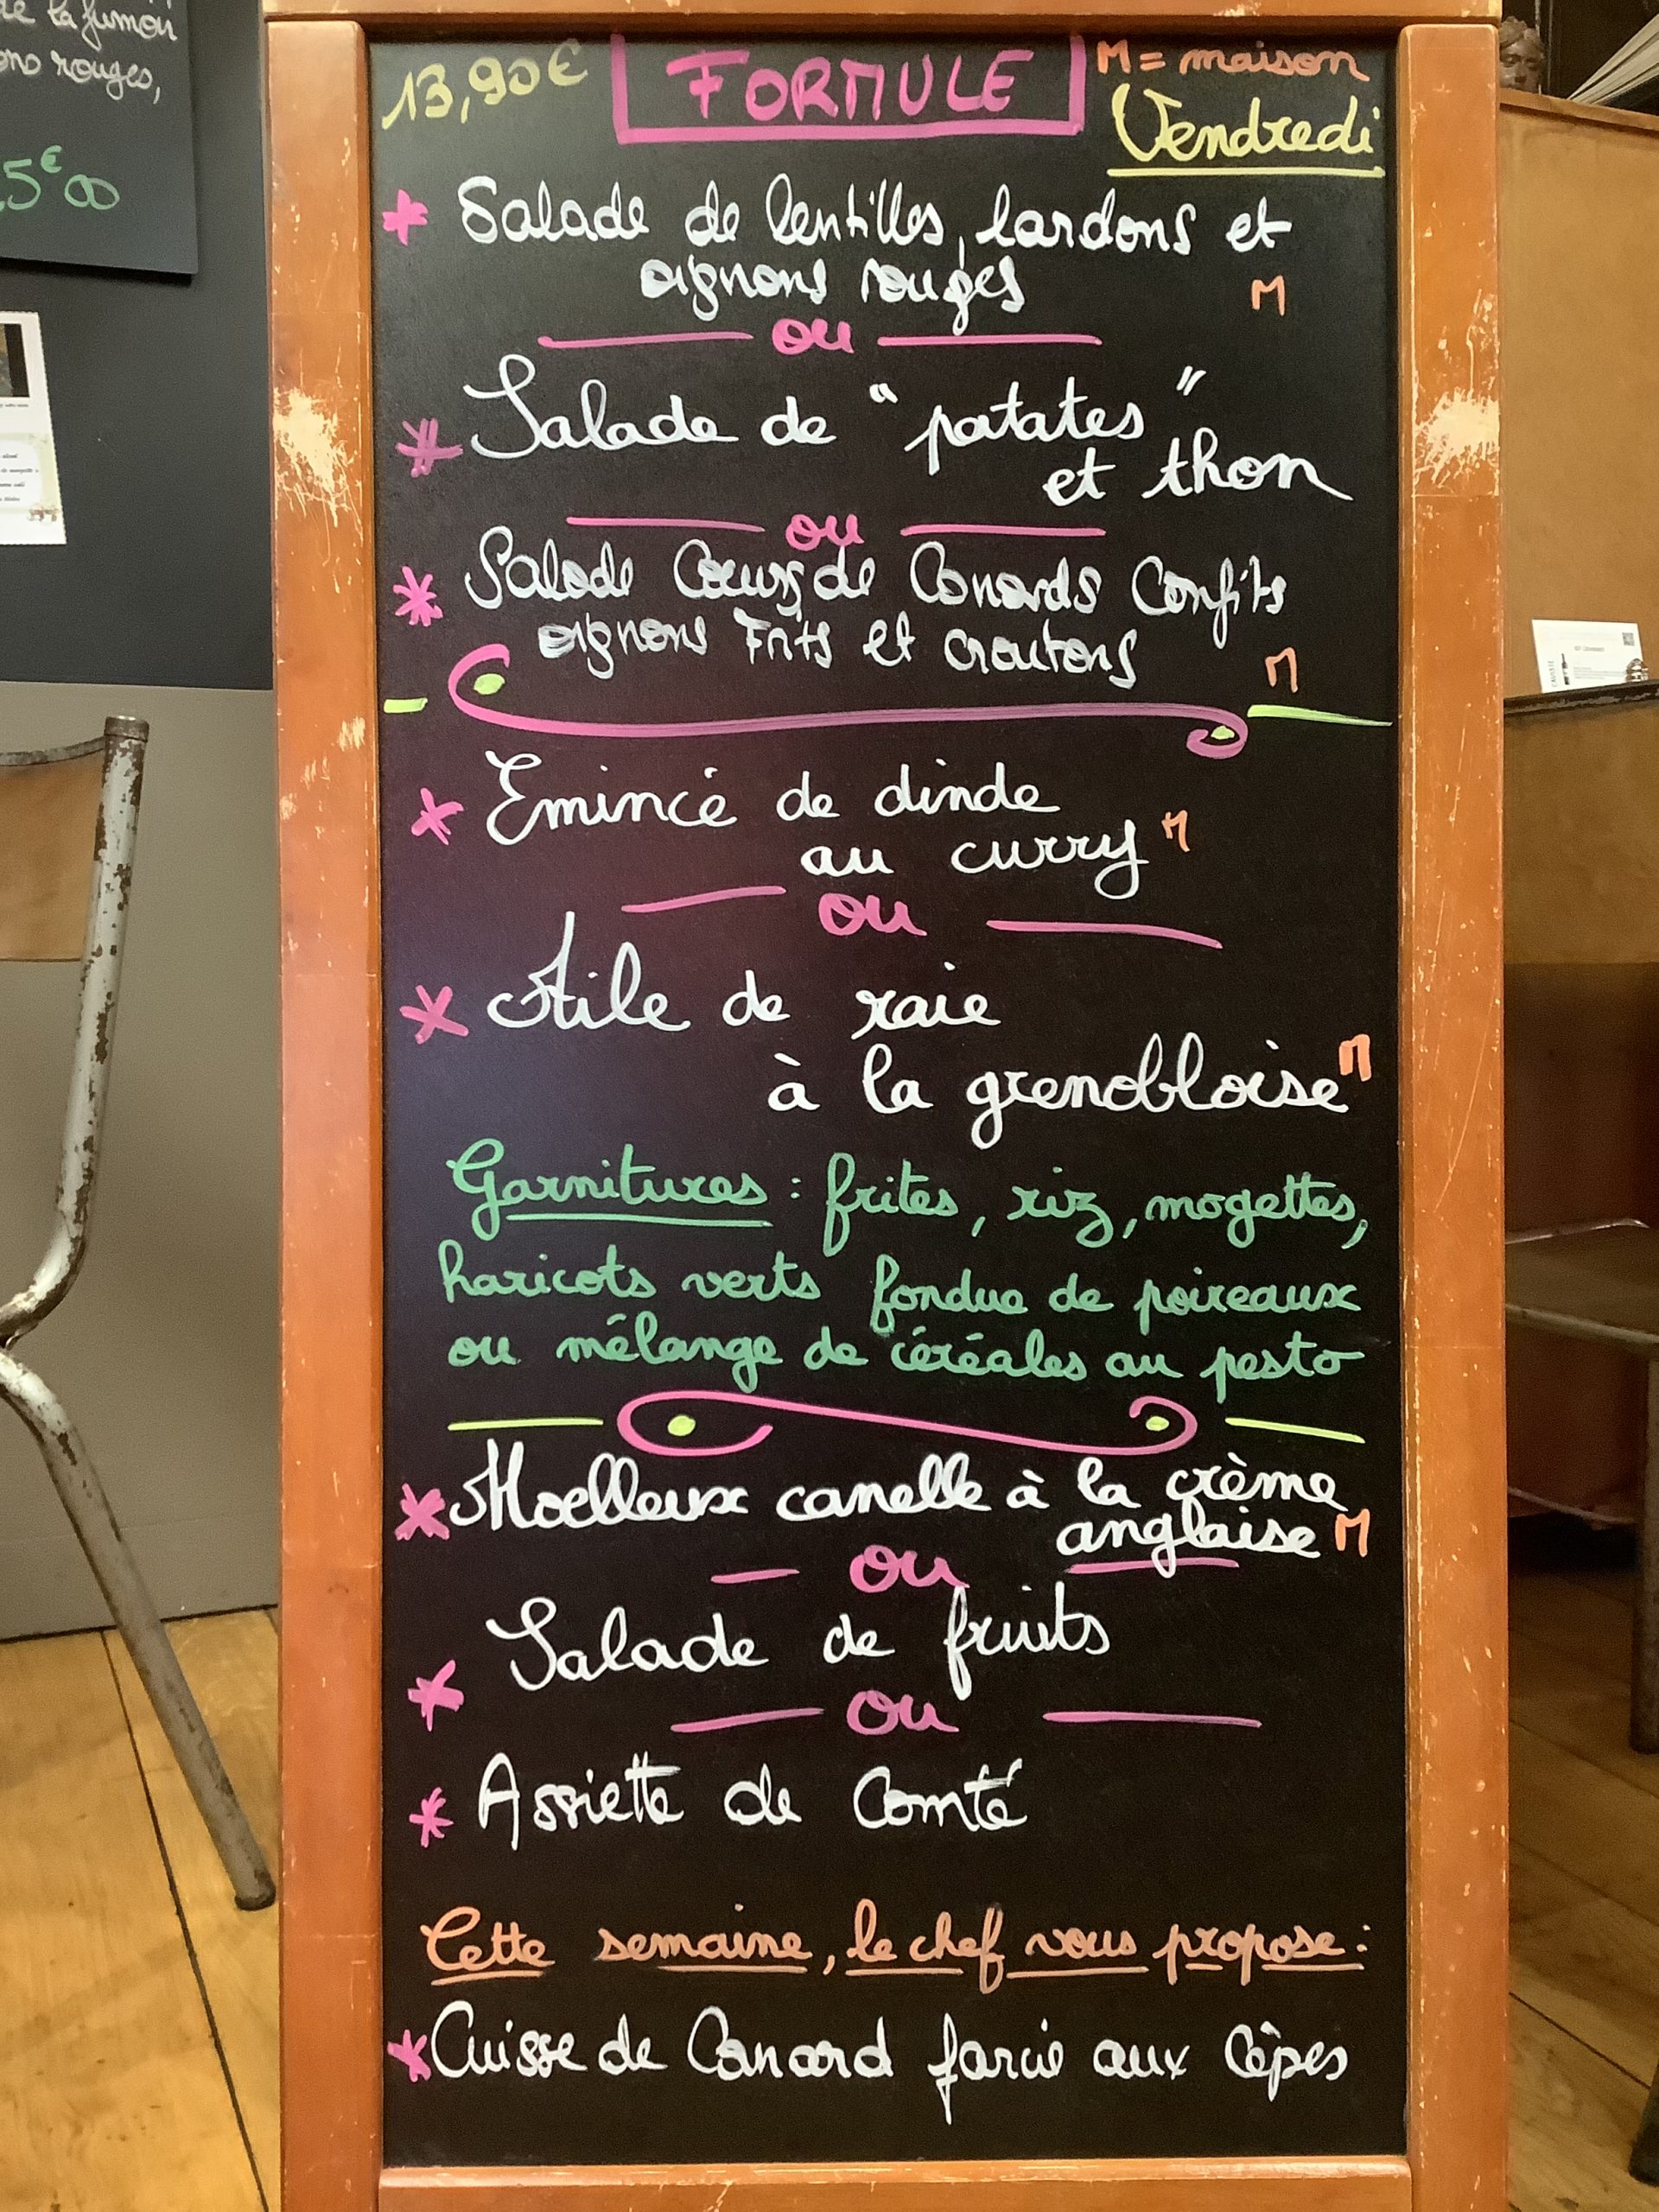 de la fumoir
rouges,
5€00
13,90€ FORMULE M = maison
Vendredi
* Salade de lentilles, lardons et
oignons rouges M
ou
* Salade de "patates"
et thon
ou
* Salade Coeurs de Canards Confits
oignons Frits et croutons M
* Emincé de dinde
au curry M
ou
* Aile de raie
à la grenobloise M
Garnitures : frites, riz, mogettes,
haricots verts fondue de poireaux
ou mélange de céréales au pesto
* Moelleux canelle à la crème
anglaise M
ou
* Salade de fruits
ou
* Assiette de Comté
Cette semaine, le chef vous propose :
* Cuisse de Canard farcie aux Cêpes